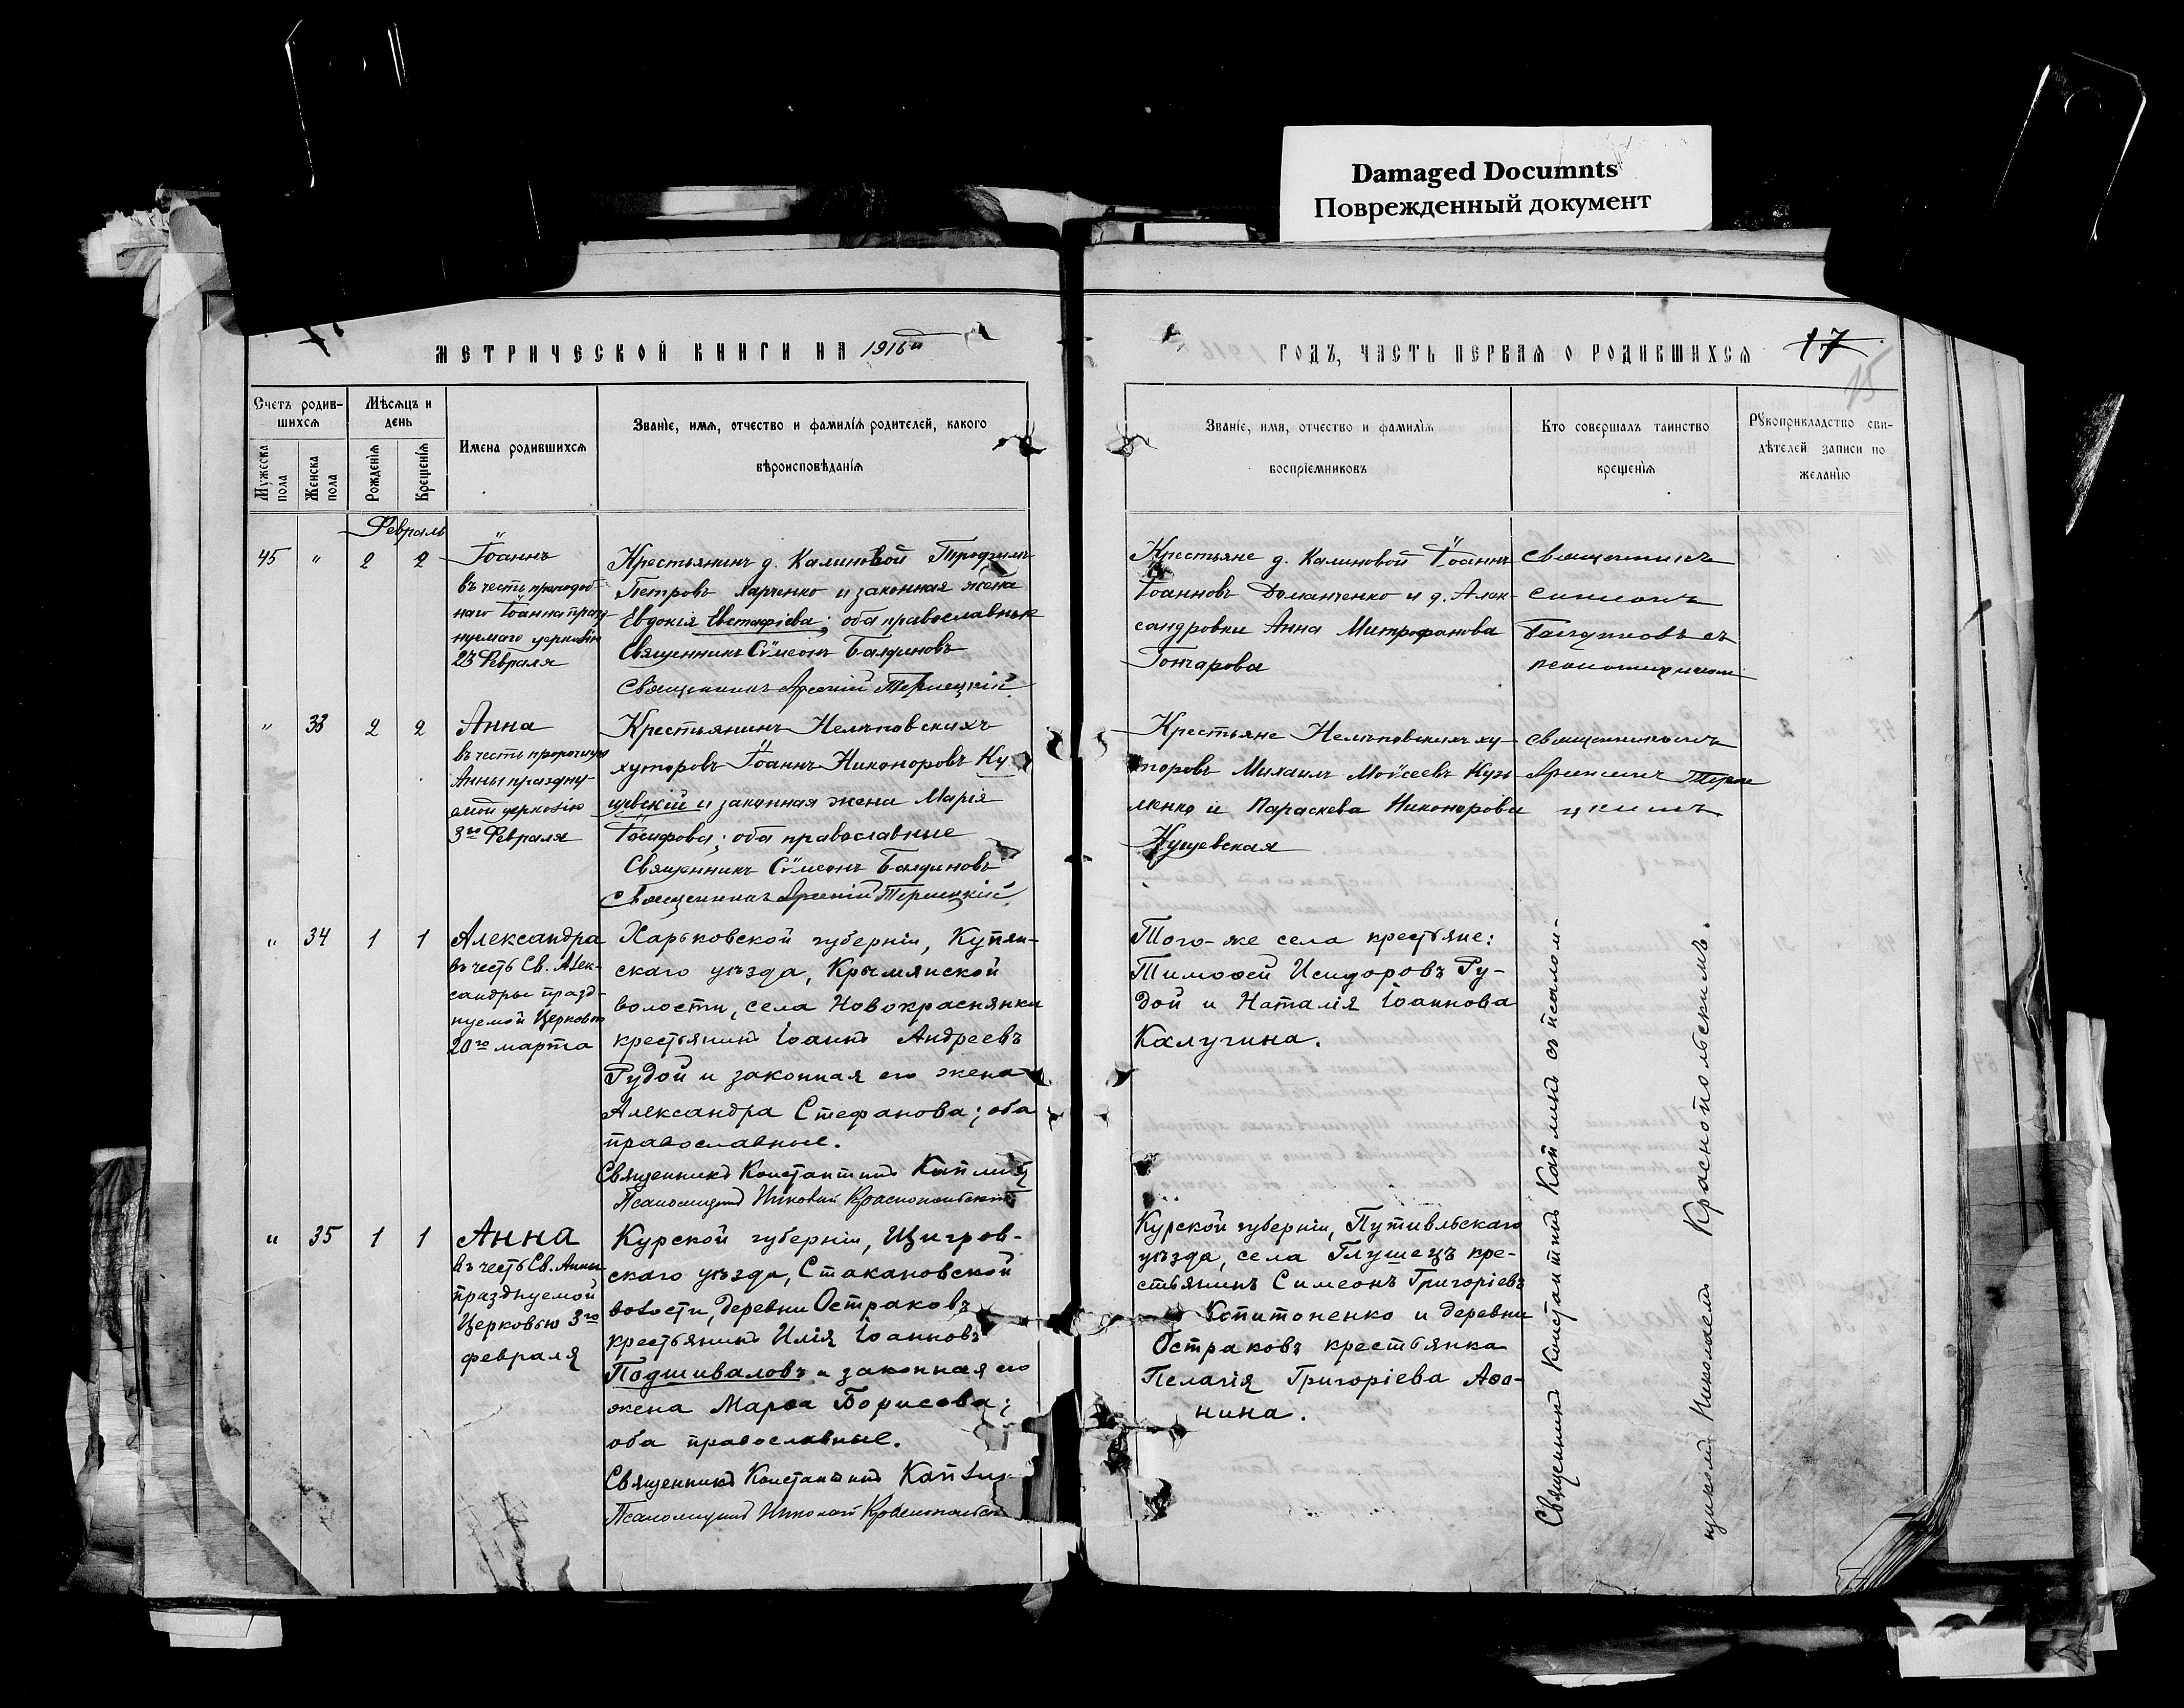 Damaged Documnts
Поврежденный документ
МЕТРИЧЕСКОЙ КНИГИ НА 1916й
Счетъ родив-
шихся
Мѣсяцъ и
день
Имена родившихся
Званіе, имя, отчество и фамилія родителей, какого
вѣроисповѣданія
Мужеска
пола
Женска
пола
Рожденія
Крещенія
Февраль
45 " 2 2
Іоаннъ
въ честь преподоб-
наго Іоанна празд
нуемаго церковію
23 Февраля
Крестьянинъ д. Калиновой Трофимъ
Петровъ Харченко и законная жена
Евдокія Евстафіева; оба православные
Священникъ Сѵмеонъ
Священникъ Арсеній
" 33 2 2
Анна
въ честь пророчицы
Анны праздну-
емой церковію
3го Февраля
Крестьянинъ
хуторовъ Іоаннъ Никоноровъ Ку
щевскій и законная жена Марія
Іосифова; оба православные
Священникъ Сѵмеонъ
Священникъ Арсеній
" 34 1 1
Александра
въ честь Св. Алек-
сандры празд-
нуемой Церковью
20го марта
Харьковской губерніи, Купян-
скаго уѣзда, Кремянской
волости, села Новокраснянки
крестьянинъ Іоаннъ Андреевъ
Рудой и законная его жена
Александра Стефанова; оба
православные.
Священникъ Константинъ
Псаломщикъ Николай Краснопольскій
" 35 1 1
Анна
въ честь Св. Анны
празднуемой
Церковью 3го
февраля
Курской губерніи, Щигров-
скаго уѣзда, Стакановской
волости, деревни Остраковъ
крестьянинъ Илія Іоанновъ
Подшиваловъ и законная его
жена Марѳа Борисова;
оба православные.
Священникъ Константинъ
Псаломщикъ Николай
ГОДЪ, ЧАСТЬ ПЕРВАЯ О РОДИВШИХСЯ 17
15
Званіе, имя, отчество и фамилія
воспріемниковъ
Кто совершалъ таинство
крещенія
Рукоприкладство сви-
дѣтелей записи по
желанію
Крестьяне д. Калиновой Іоаннъ
Іоанновъ Доманченко и д. Алек-
сандровки Анна Митрофанова
Гончарова
Священникъ
Симеонъ
съ
псаломщикомъ
Крестьяне ху-
торовъ Михаилъ Моѵсеевъ Кузь
менко и Параскева Никонорова
Кущевская
Священникъ
Того-же села крестьяне:
Тимоѳей Исидоровъ Ру-
дой и Наталія Іоаннова
Калугина.
Курской губерніи, Путивльскаго
уѣзда, села Глушецъ кре-
стьянинъ Симеонъ Григоріевъ
и деревни
Остраковъ крестьянка
Пелагія Григоріева Аѳо-
нина.
Священникъ Константинъ съ псалом-
щикомъ Николаемъ Краснопольскимъ.